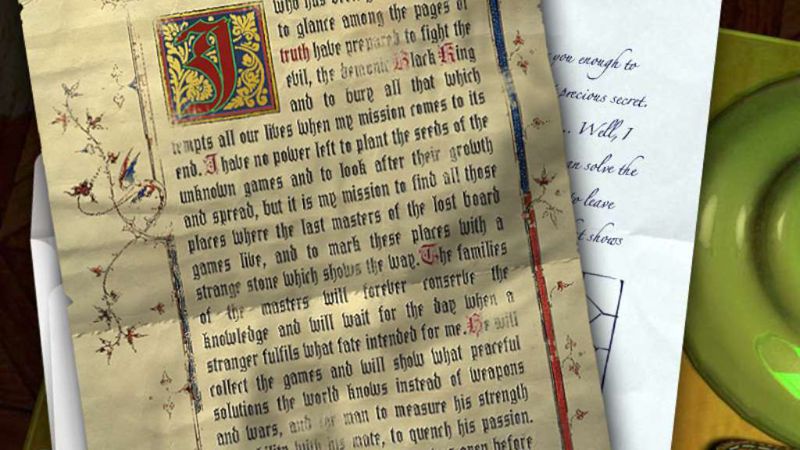 who has been
to glance among the pages of
truth have prepared to fight the
evil, the demonic Black King
and to bury all that which
tempts all our lives when my mission comes to its
end. I have no power left to plant the seeds of the
unknown games and to look after their growth
and spread, but it is my mission to find all those
places where the last masters of the lost board
games live, and to mark these places with a
strange stone which shows the way. The families
of the masters will forever conserve the
knowledge and will wait for the day when a
stranger fulfils what fate intended for me. He will
collect the games and will show what peaceful
solutions the world knows instead of weapons
and wars, and the man to measure his strength
with his mate, to quench his passion.
before
you enough to
precious secret.
... Well, I
can solve the
to leave
shows